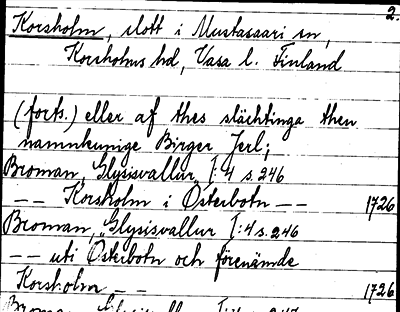 2.
Korsholm, slott i Mustasaari sn,
Korsholms hd, Vasa l. Finland
(forts.) eller af thes slächtinga then
namnkunige Birger Jerl;
Broman, Glysisvallur, I:4 s. 246
-- Korsholm i Österbotn -- 1726
Broman, Glysisvallur I:4 s. 246
-- uti Österbotn och förenämde
Korsholm -- 1726
Broman